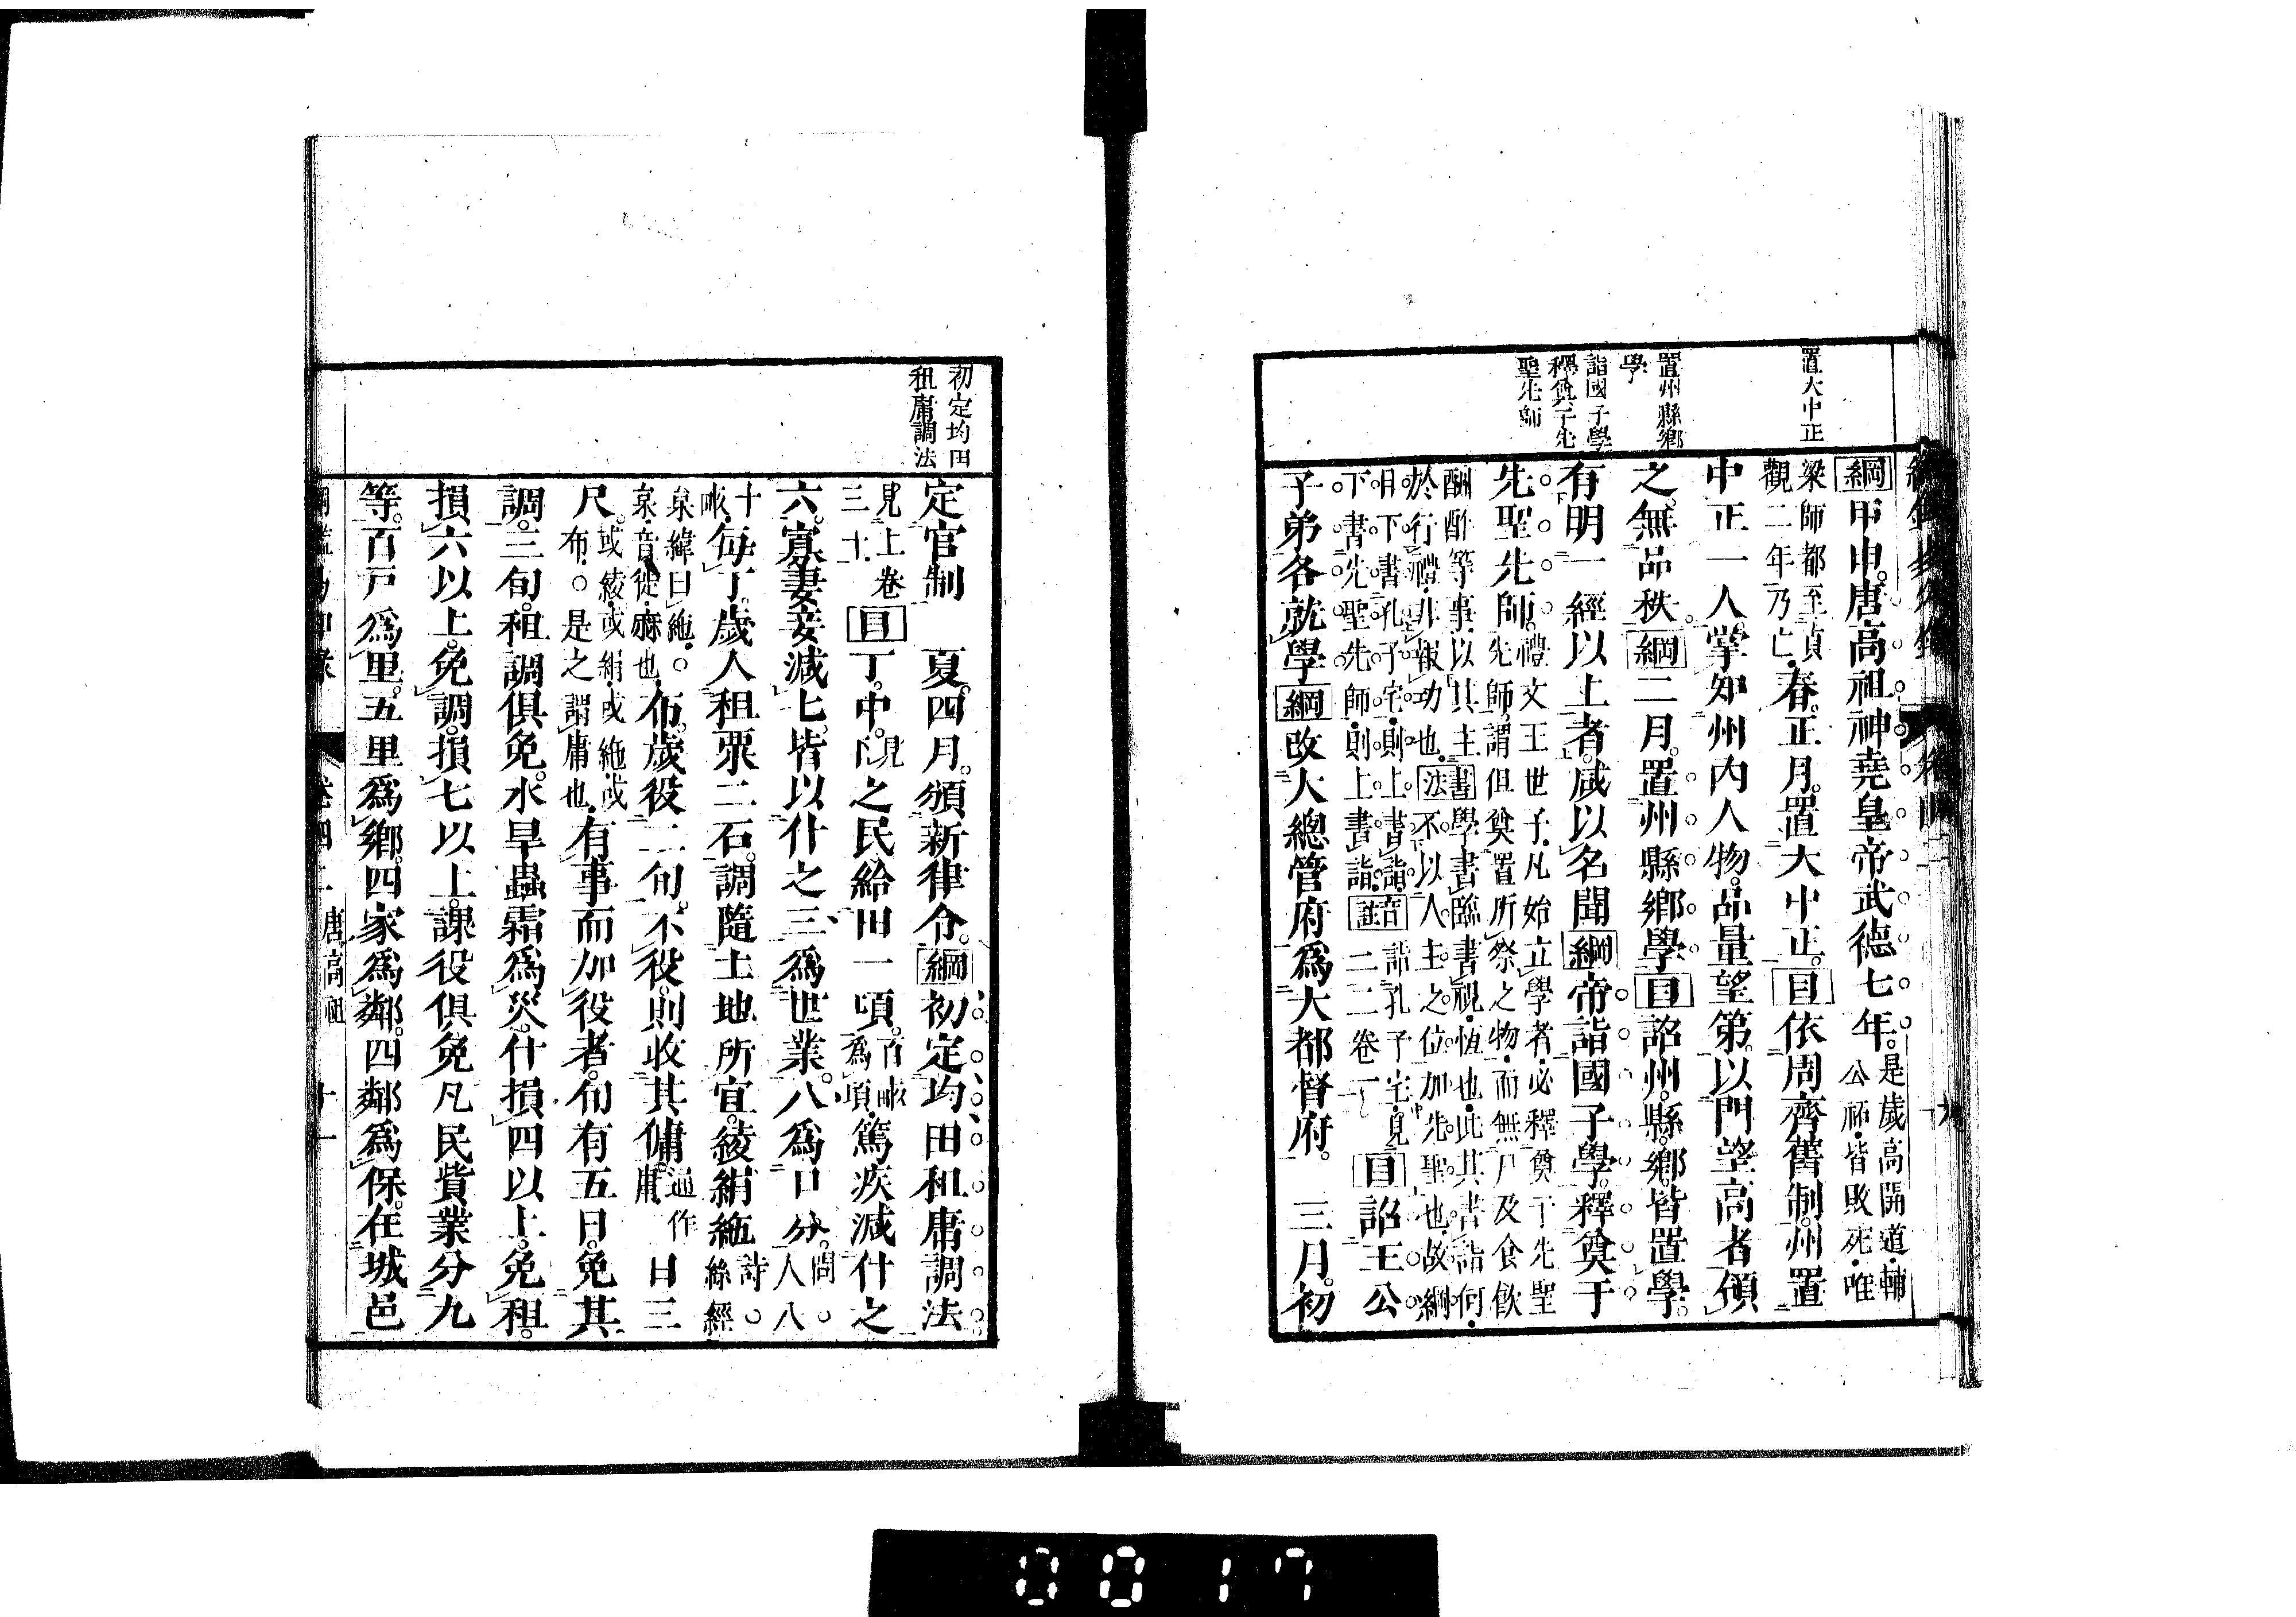 置大中正
置州縣鄉
學
詣國子學
釋奠于先
聖先師
綱甲申。唐高祖神堯皇帝武德七年。是歲高開道・輔
公祏・皆敗死・唯
梁師都至貞
觀二年乃亡・春。正月。置大中正。目依周齊舊制。州置
中正一人。掌知州內人物。品量望第。以門望高者領
之。無品秩。綱二月。置州縣鄉學。目詔州。縣。鄉。皆置學。
有明一經以上者。咸以名聞綱帝詣國子學。釋奠于
先聖先師。禮文王世子・凡始立學者・必釋奠于先聖
先師。謂但奠置所祭之物・而無尸及食飲
酬酢等事・以其主
於行禮・非報功也・書學書臨書視・恆也・此其書詣何・
法不以人主之位加先聖也・故綱
目下書孔子宅・則上書詣・
下書先聖先師・則上書詣・音詣孔子宅・見
註二二卷一
目詔王公
子弟各就學綱改大總管府爲大都督府。　三月。初
初定均田
租庸調法
定官制　夏。四月。頒新律令。綱初定均田租庸調法
見上卷
三十
目丁。中。見
下
之民給田一頃。百畝
爲頃・
篤疾減什之
六。寡妻妾減七。皆以什之三爲世業。八爲口分。問。
人八
十
畝・
每丁。歲入租粟二石。調隨土地所宜。綾絹絁詩。
絲經
枲緯曰絁・。
枲・音徙・麻也・
布。歲役二旬。不役。則收其傭。通作
庸
日三
尺。或綾・或絹・或絁・或
布・。是之謂庸也・
有事而加役者。旬有五日。免其
調。三旬。租調俱免。水旱蟲霜爲災。什損四以上。免租。
損六以上。免調。損七以上。課役俱免凡民貲業分九
等。百戶爲里。五里爲鄉。四家爲鄰。四鄰爲保。在城邑
卷四二　唐高祖　十一
0017